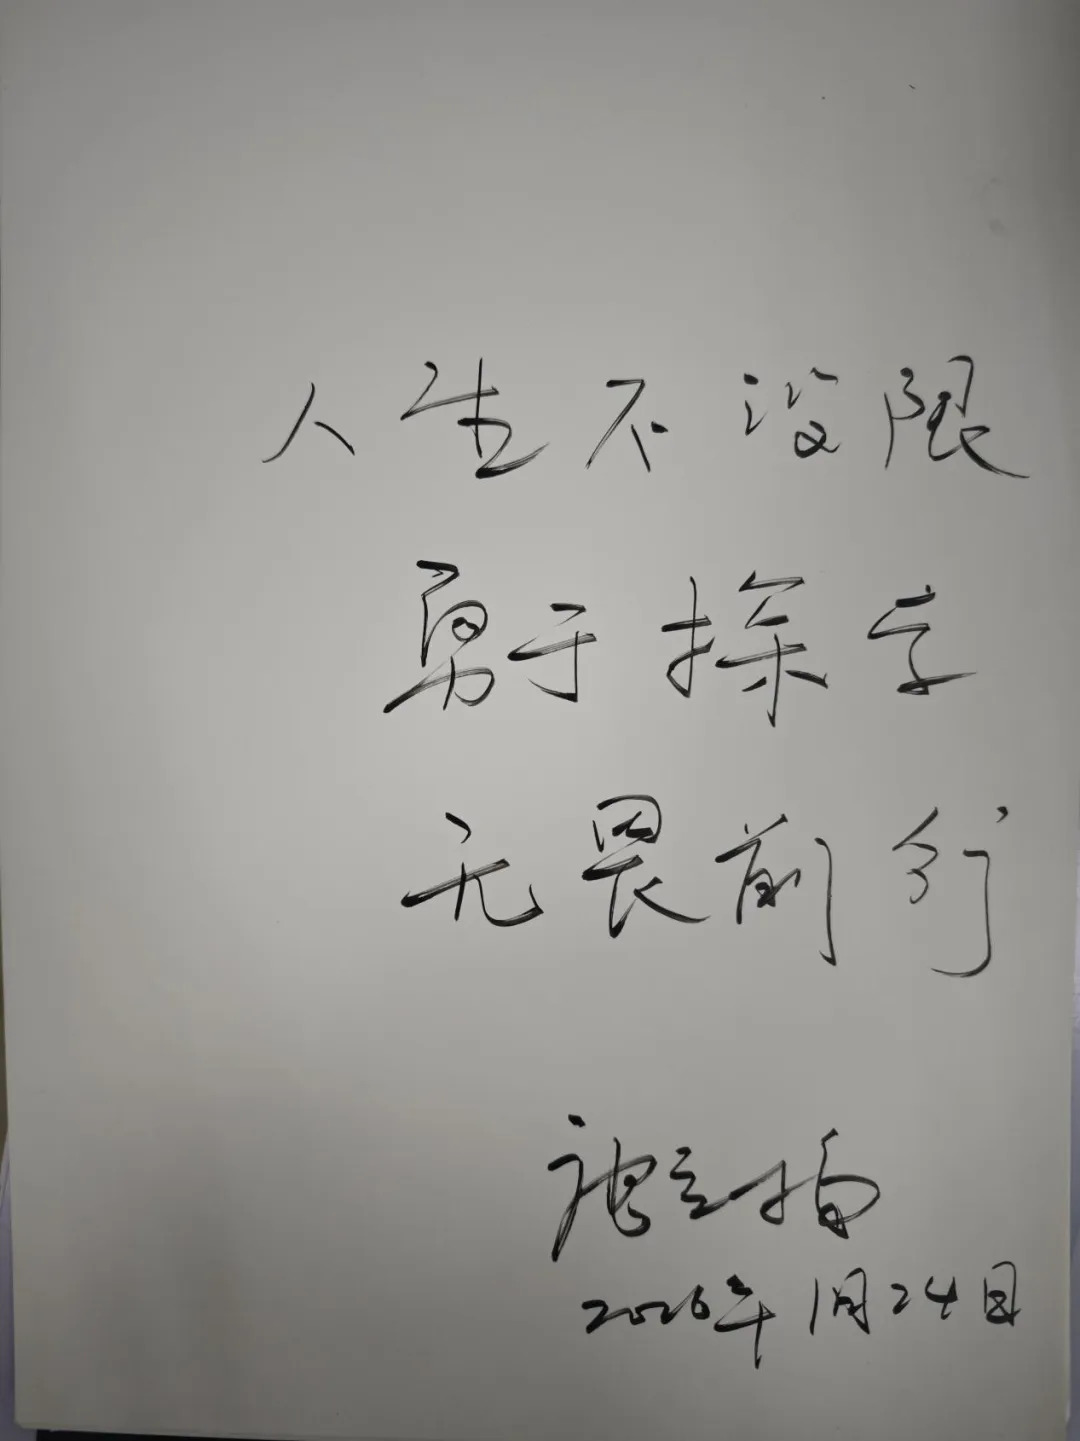 人生不设限
勇于探索
无畏前行
唐立梅
2026年1月24日